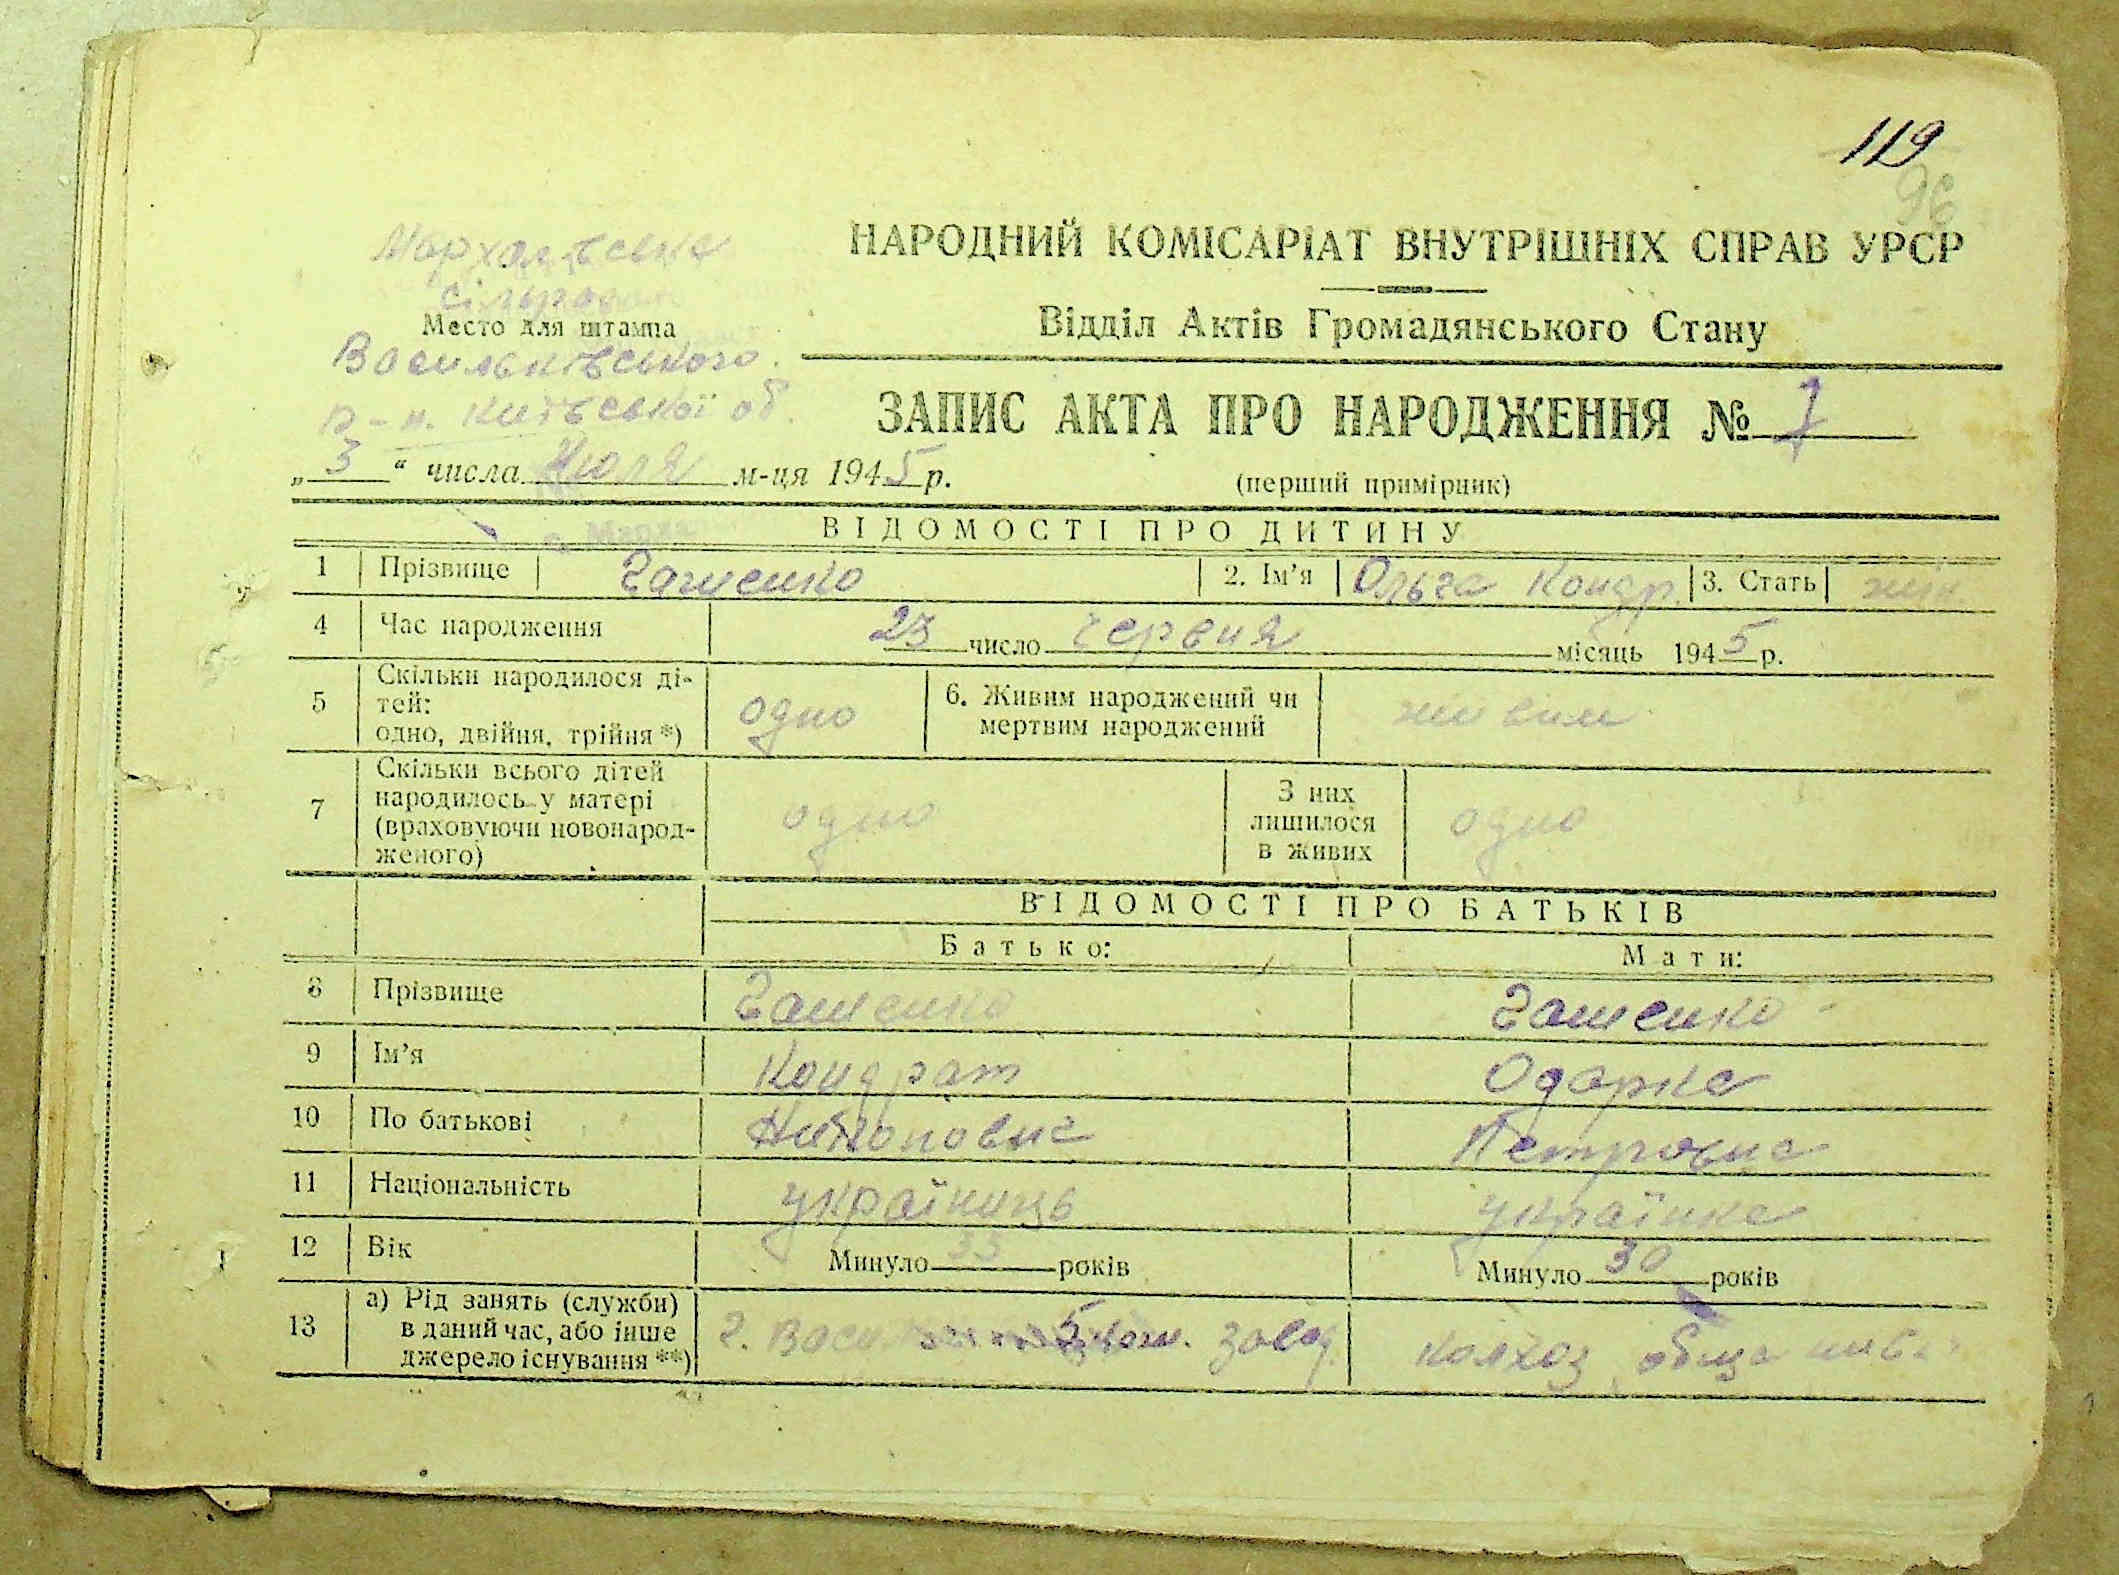 119
96
Мархалівська
сільрада
НАРОДНИЙ КОМІСАРІАТ ВНУТРІШНІХ СПРАВ УРСР
Место для штампа
Відділ Актів Громадянського Стану
Васильківського
р-н. Київської об.
ЗАПИС АКТА ПРО НАРОДЖЕННЯ № 7
„ 3 “ числа Июля м-ця 1945 р.
(перший примірник)
ВІДОМОСТІ ПРО ДИТИНУ
1 Прізвище Гашенко 2. Ім’я Ольга Кондр. 3. Стать жін.
4 Час народження 23 число червня місяць 1945 р.
5 Скільки народилося ді-
тей:
одно, двійня, трійня *) одно 6. Живим народжений чи
мертвим народжений живим
7 Скільки всього дітей
народилось у матері
(враховуючи новонарод-
женого) одно З них
лишилося
в живих одно
ВІДОМОСТІ ПРО БАТЬКІВ
Батько: Мати:
8 Прізвище Гашенко Гашенко
9 Ім’я Кондрат Одарка
10 По батькові Петровна
11 Національність українць українка
12 Вік Минуло 35 років Минуло 30 років
13 а) Рід занять (служби)
в даний час, або інше
джерело існування **) г. Васи завод. колхоз